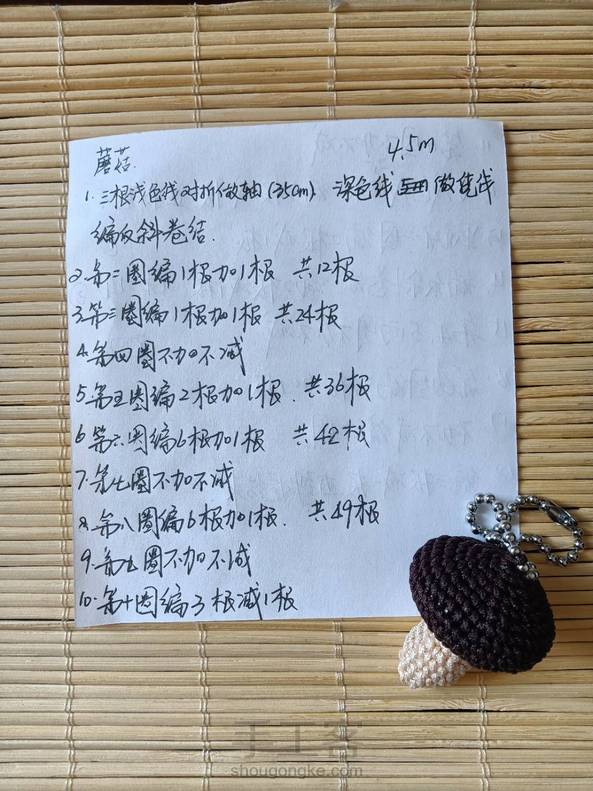 蘑菇.
4.5m
1. 三根浅色线对折做轴(35cm) 深色线 做绕线
编反斜卷结.
2. 第二圈编1根加1根 共12根
3. 第三圈编1根加1根 共24根
4. 第四圈不加不减
5. 第五圈编2根加1根. 共36根
6. 第六圈编6根加1根 共42根
7. 第七圈不加不减
8. 第八圈编6根加1根. 共49根
9. 第九圈不加不减
10. 第十圈编3根减1根
手工客
shougongke.com